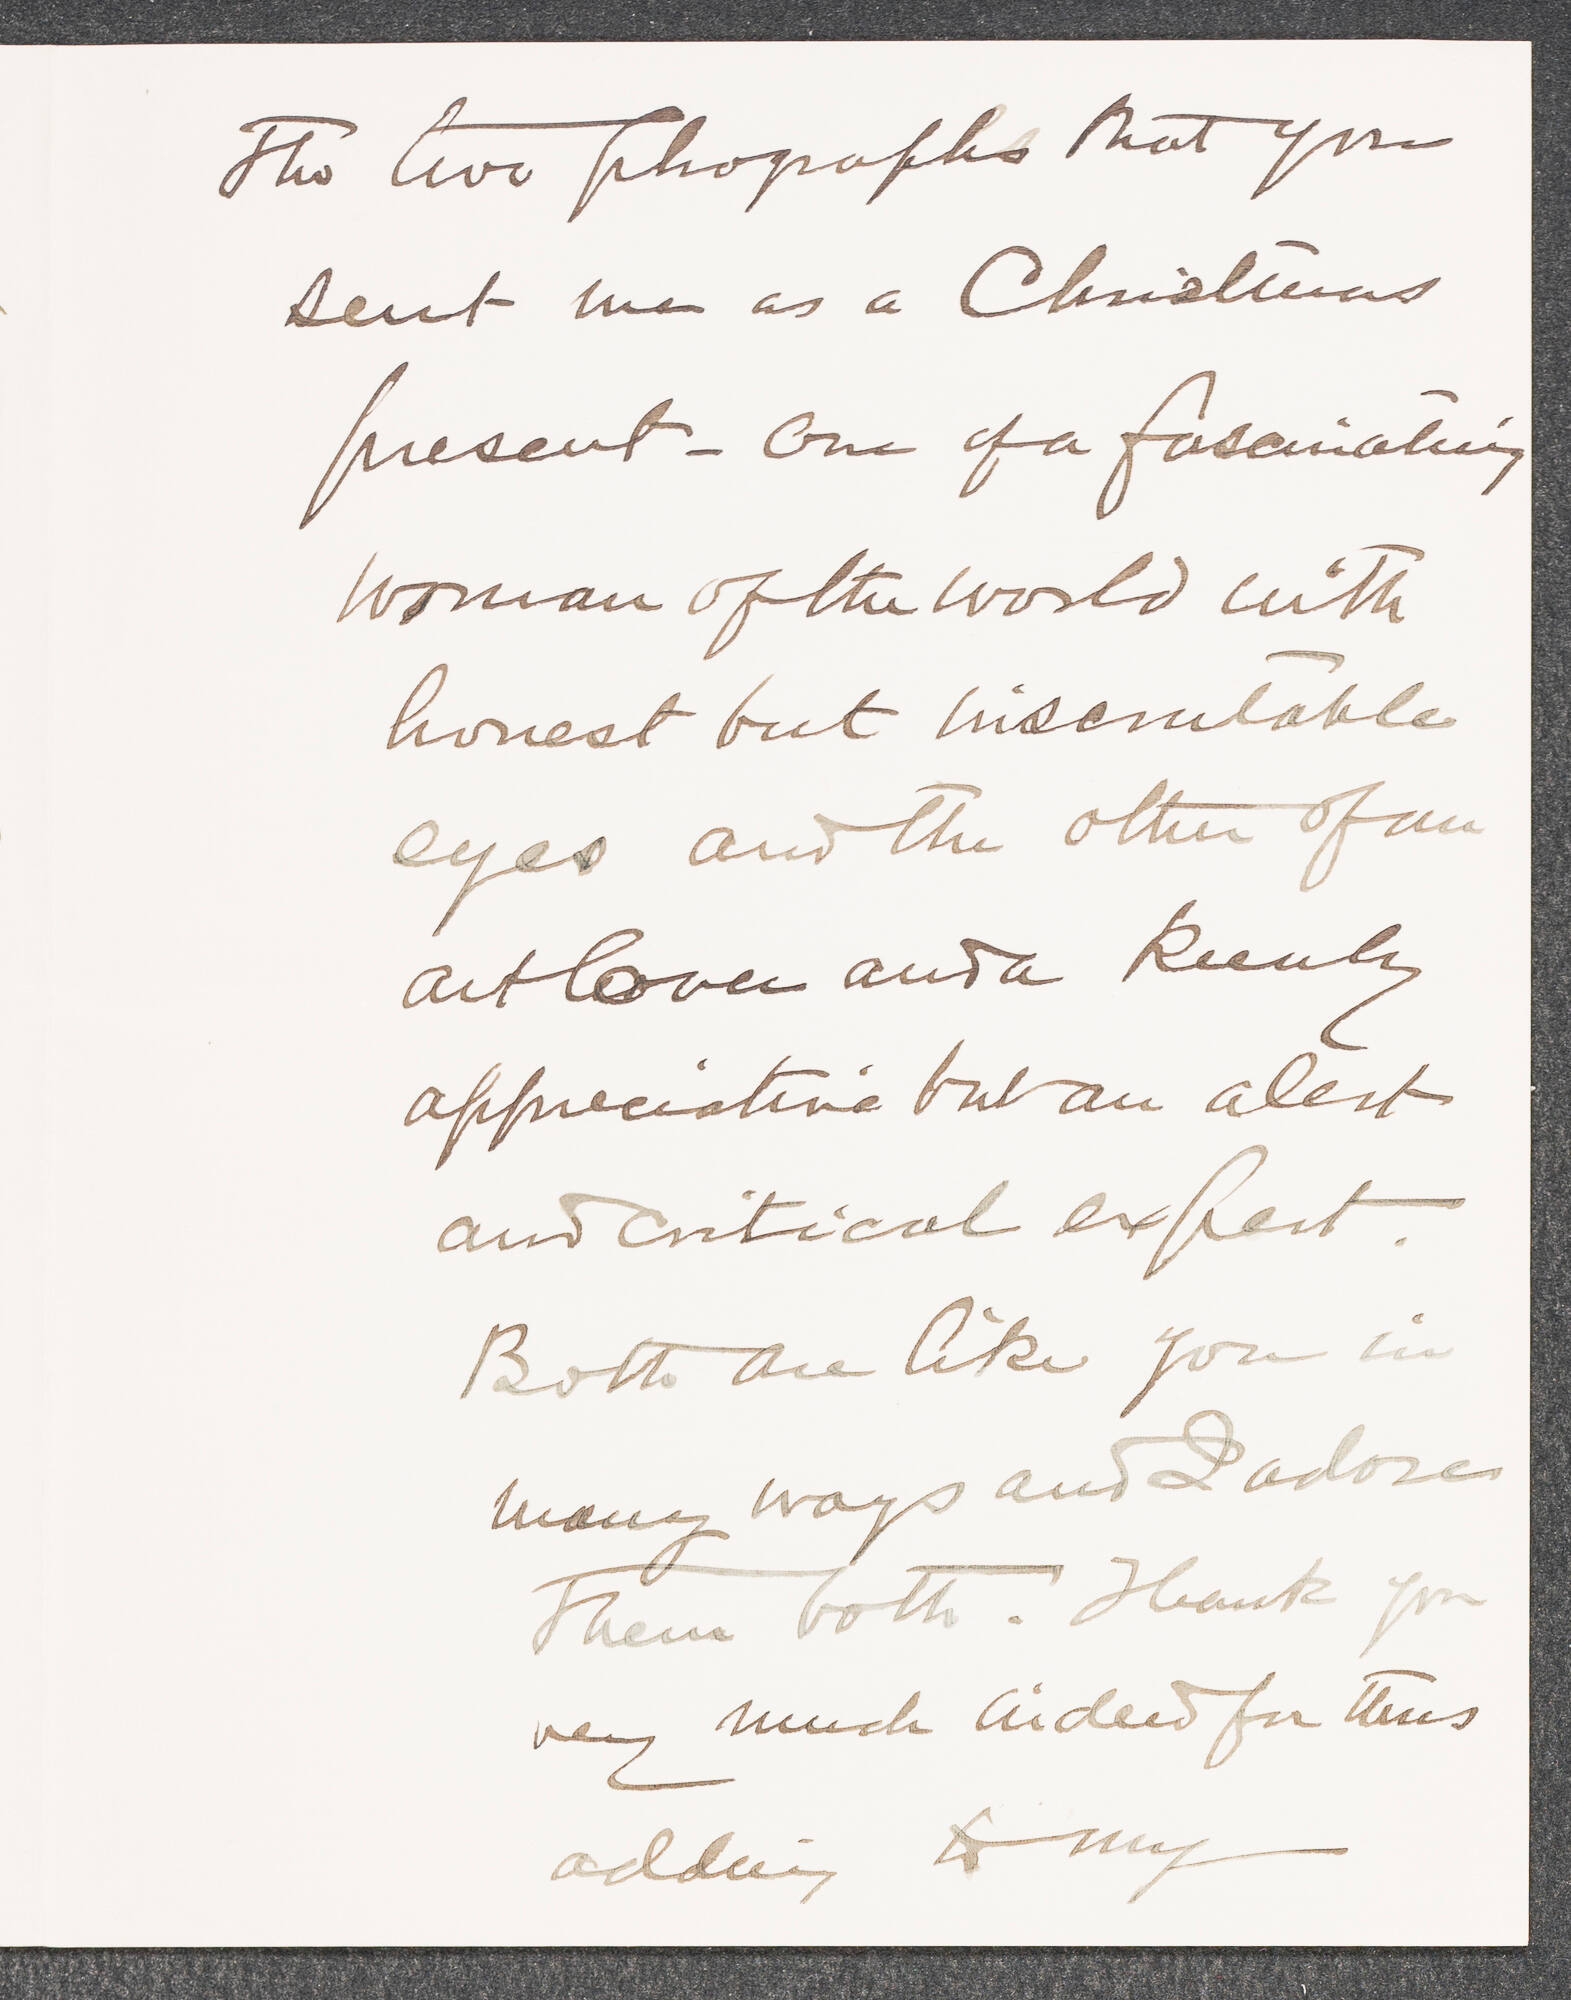 The two phographs that you
sent me as a Christmas
present - one of a fascinating
woman of the world with
honest but inscrutable
eyes and the other of an
art lover and a keenly
appreciative but an alert
and critical expert.
Both are like you in
many ways and I adore
them both. Thank you
very much indeed for thus
adding to my